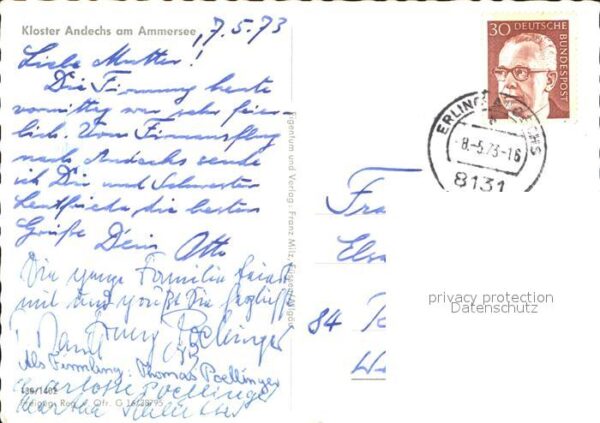 Kloster Andechs am Ammersee
7.5.73
Liebe Mutter!
Die Firmung heute
vormittag war sehr feier-
lich. Vom Firmausflug
nach Andechs sende
ich Dir und Schwester
die besten
Grüße Dein Otto
Die ganze Familie feiert
mit und grüßt Sie
Poellinger
Als Firmling: Thomas Poellinger
Poellinger
Eigentum und Verlag: Franz Milz,
30 DEUTSCHE BUNDESPOST
ERLING-ANDECHS
-8.-5.73-16
8131
Fra
Els
84 R
privacy protection
Datenschutz